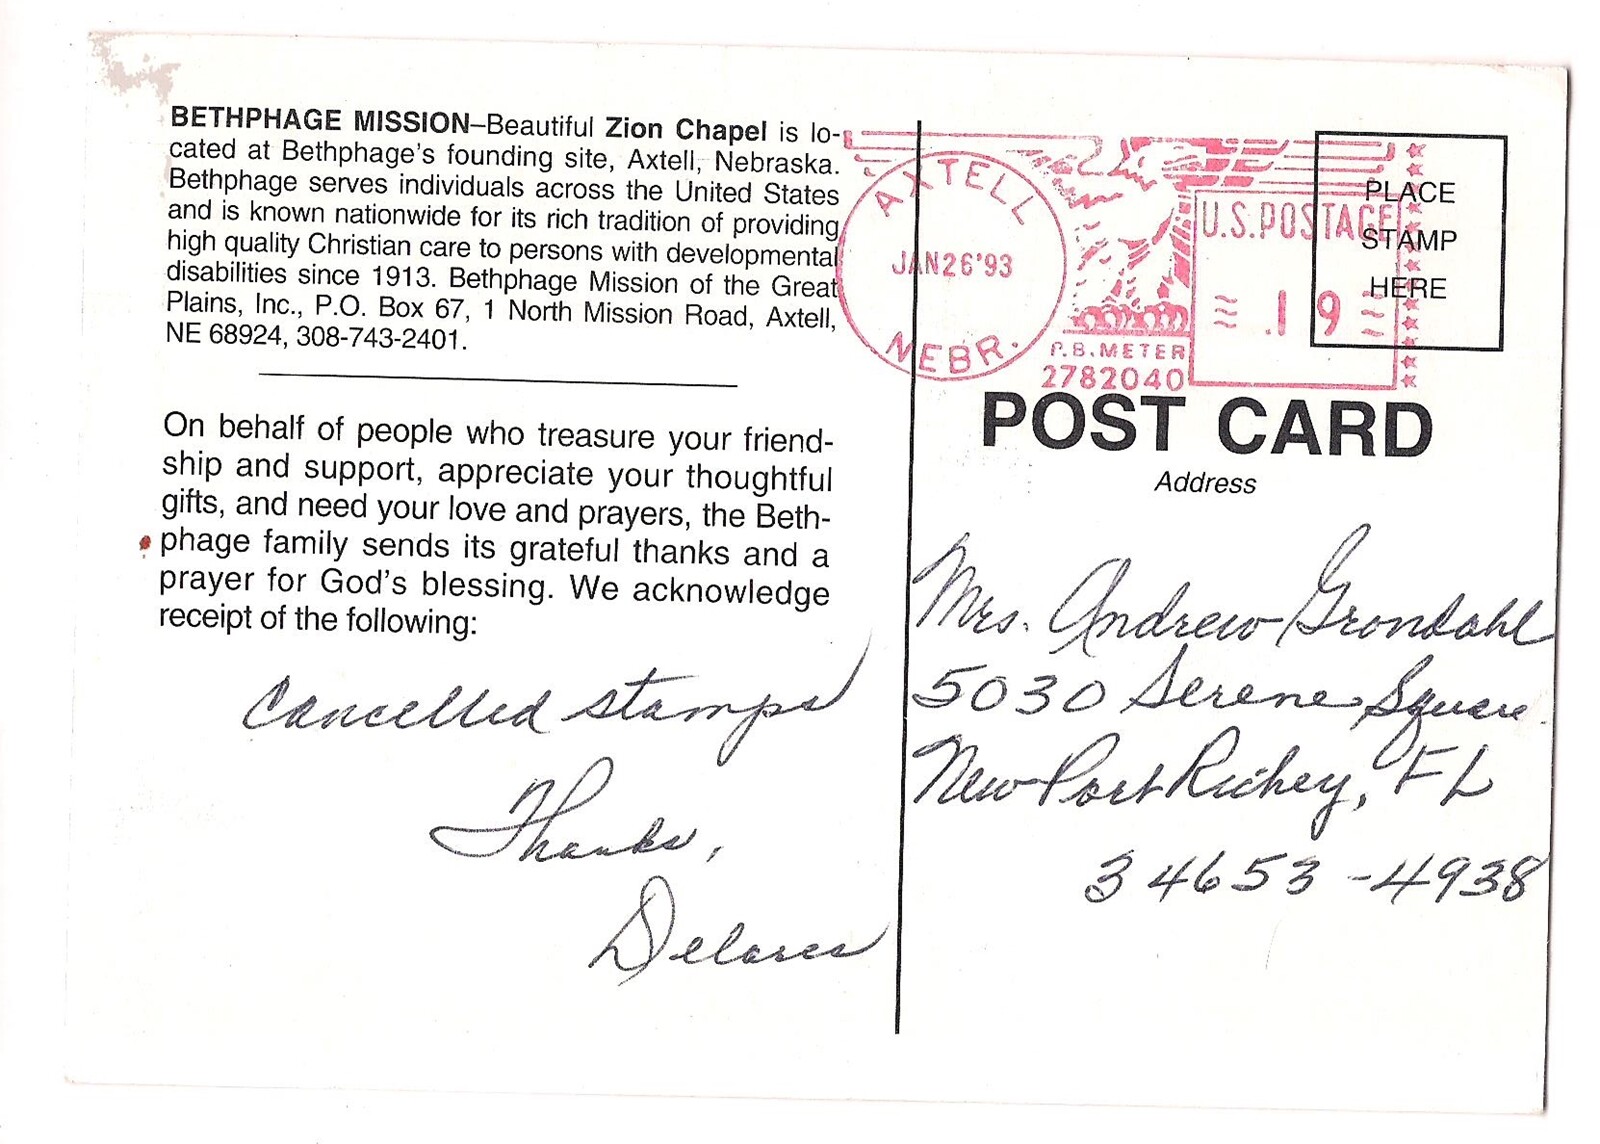 BETHPHAGE MISSION–Beautiful Zion Chapel is lo-
cated at Bethphage's founding site, Axtell, Nebraska.
Bethphage serves individuals across the United States
and is known nationwide for its rich tradition of providing
high quality Christian care to persons with developmental
disabilities since 1913. Bethphage Mission of the Great
Plains, Inc., P.O. Box 67, 1 North Mission Road, Axtell,
NE 68924, 308-743-2401.
On behalf of people who treasure your friend-
ship and support, appreciate your thoughtful
gifts, and need your love and prayers, the Beth-
phage family sends its grateful thanks and a
prayer for God's blessing. We acknowledge
receipt of the following:
Cancelled stamps
Thanks,
Delores
AXTELL
JAN26'93
NEBR.
P.B.METER
2782040
U.S.POSTAGE
.19
PLACE
STAMP
HERE
POST CARD
Address
Mrs. Andrew Grondahl
5030 Serene Square
New Port Richey, FL
34653-4938